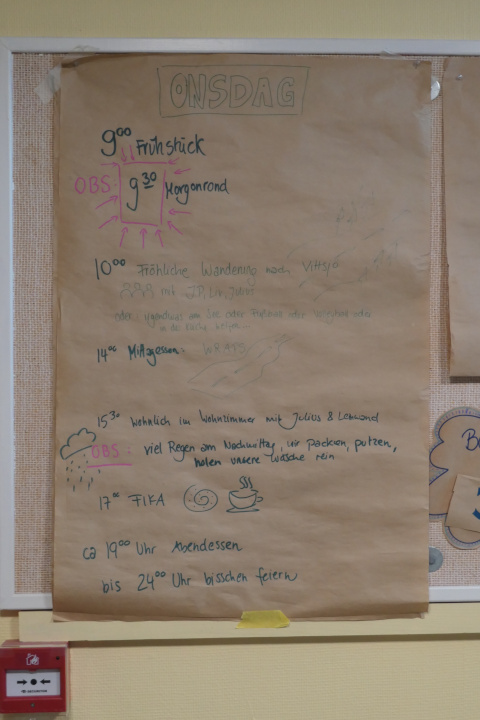 ONSDAG
9⁰⁰ Frühstück
OBS: 9³⁰ Morgenrond
10⁰⁰ Fröhliche Wanderung nach Vittsjö
mit JP, Liv, Julius
oder irgendwas am See oder oder
in der
14⁰⁰ Mittagessen: WRAPS
15³⁰ Wohnlich im Wohnzimmer mit Julius &
OBS: viel Regen am Nachmittag, wir packen, putzen,
holen unsere Wäsche rein
17⁰⁰ FIKA
ca 19⁰⁰ Uhr Abendessen
bis 24⁰⁰ Uhr bisschen feiern